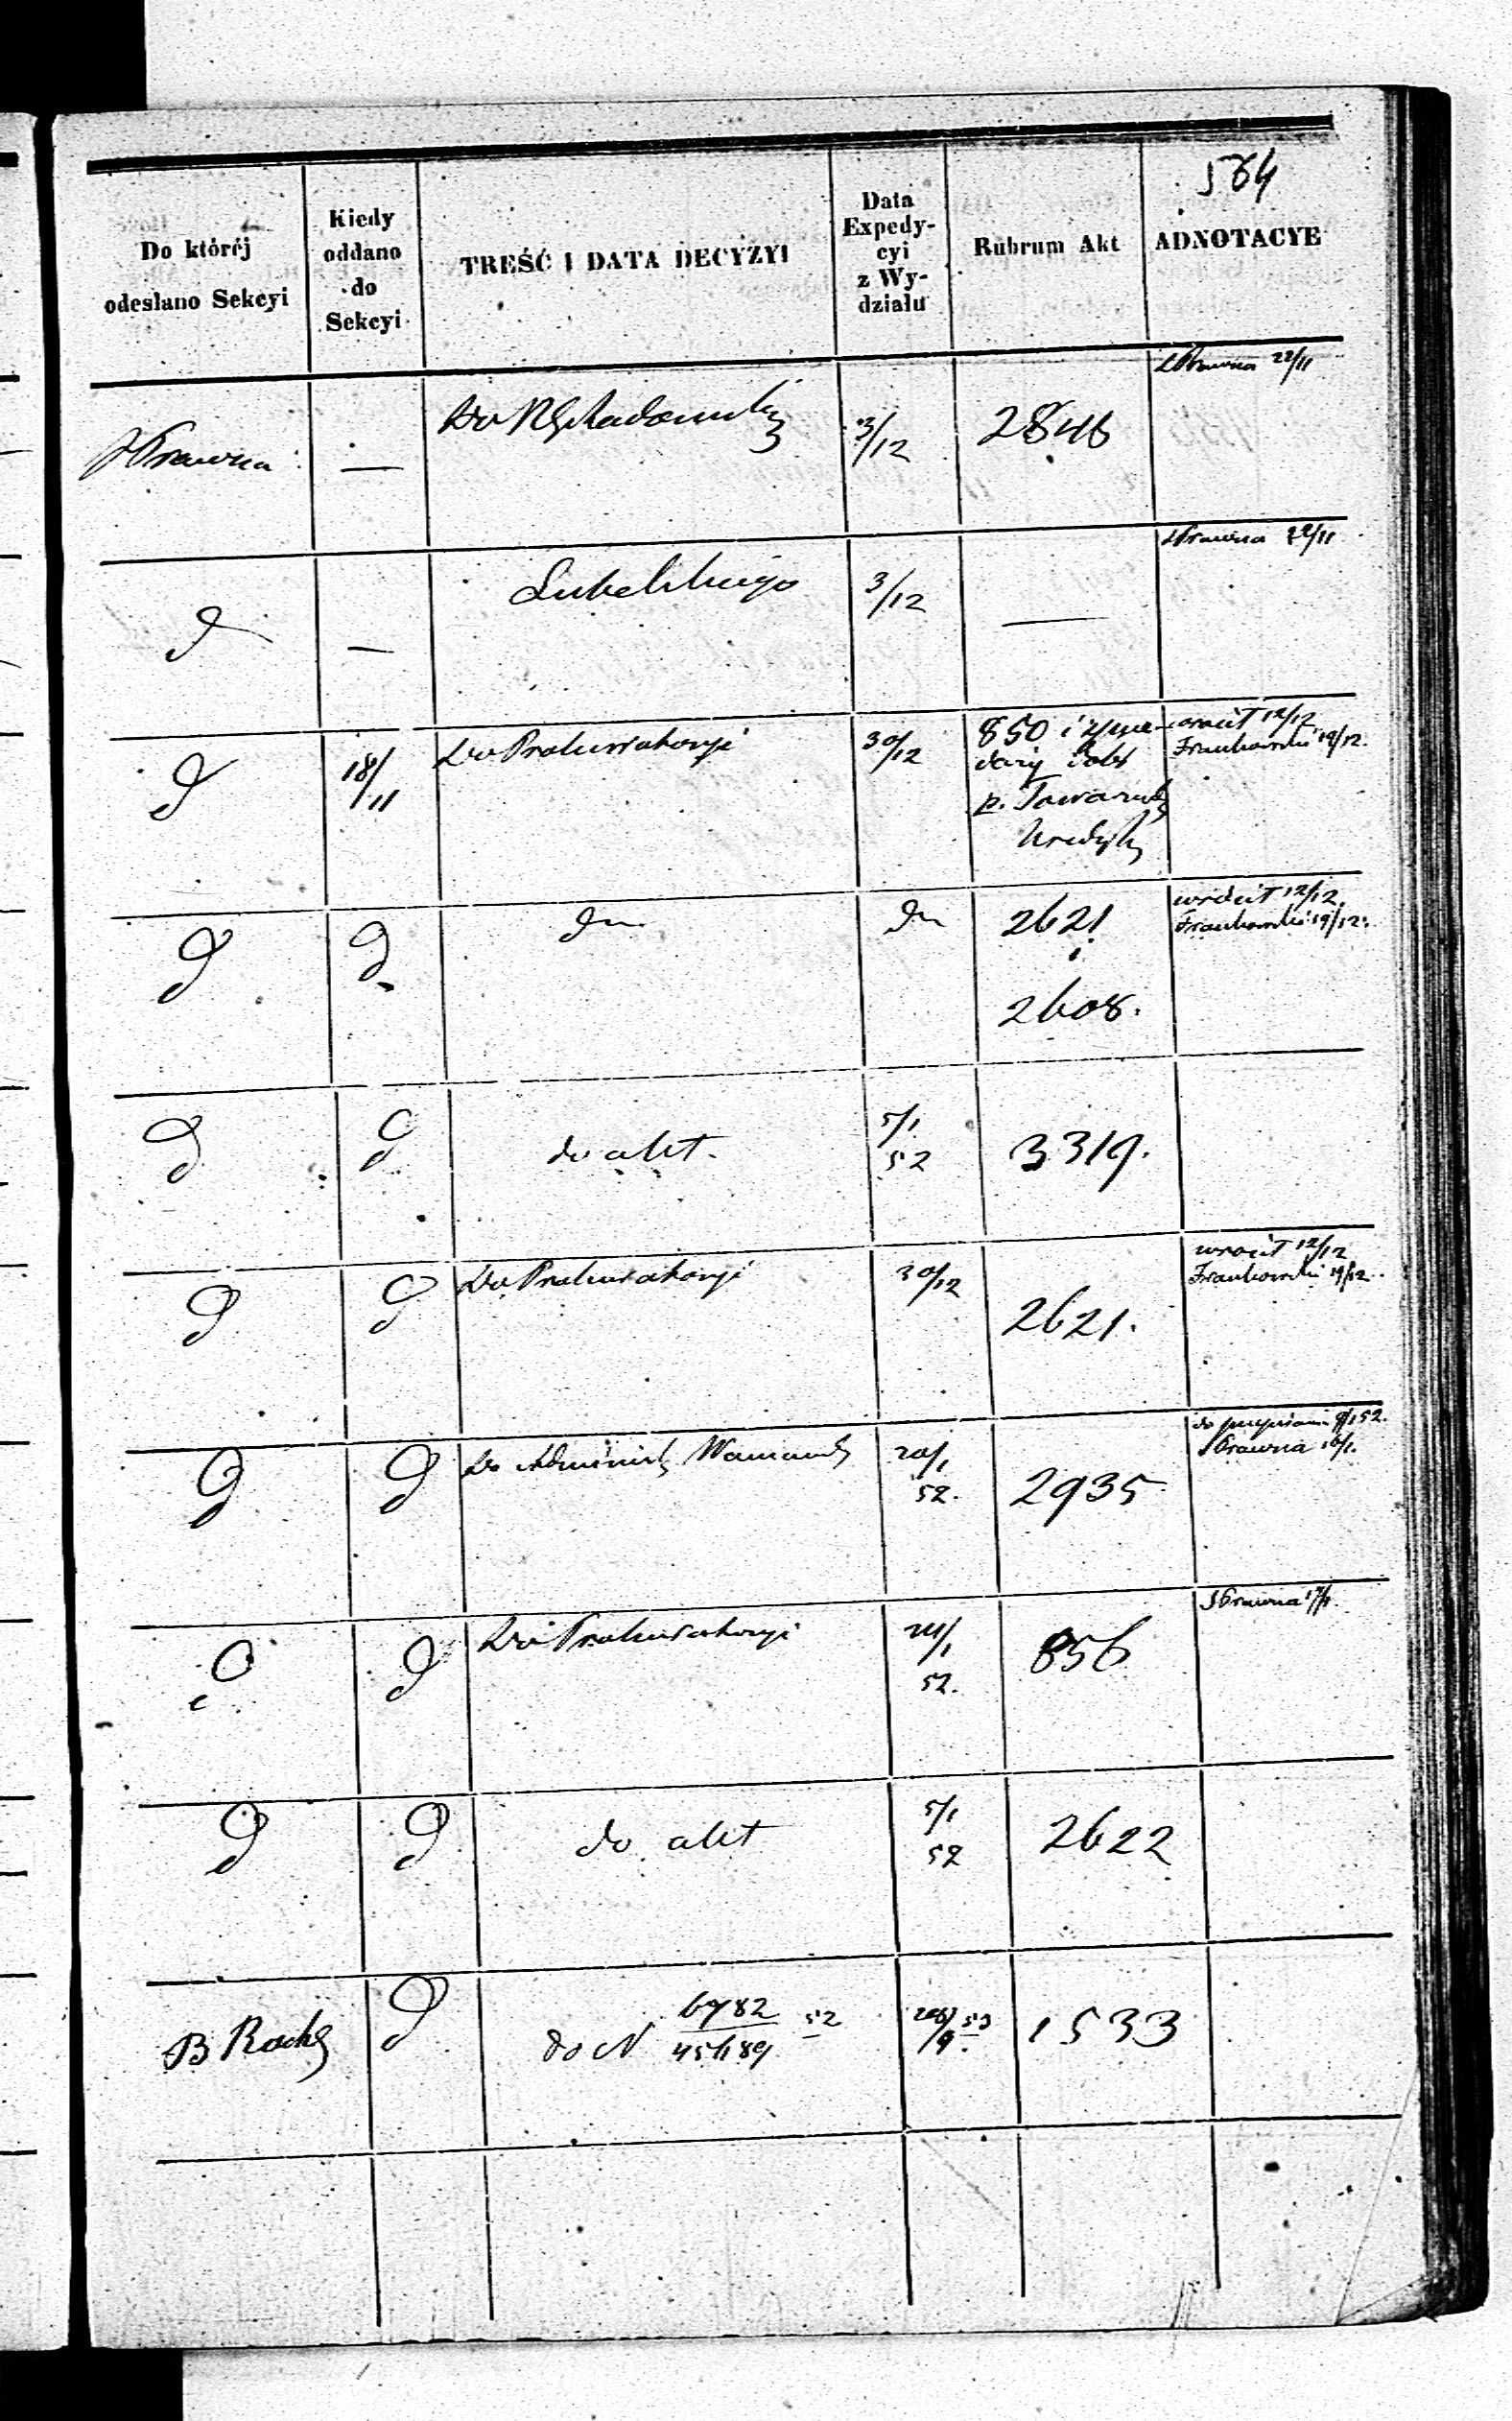 564
Do któréj odesłano Sekcyi
Kiedy oddano do Sekcyi
TREŚĆ I DATA DECYZYI
Data Expedycyi z Wydziału
Rubrum Akt
ADNOTACYE
Prawna — Do 3/12 2846 Prawna 22/11
d — Lubelskiego 3/12 — Prawna 22/11
d 18/11 Do Prokuratoryi 30/12 850 i wrócił 12/12
Frankowski 19/12.
p. Towarz
Kredyt
d d dn dn 2621 wrócił 12/12
i Frankowski 19/12.
2608.
d d do akt. 5/1 52 3319.
d d Do Prokuratoryi 30/12 2621. wrócił 12/12
Frankowski 19/12.
d d Do Warszaws 20/1 52. 2935 do przepisania 9/1 52.
Prawna 16/1.
d d Do Prokuratoryi 24/1 52. 856 Prawna 17/1.
d d do akt 5/1 52 2622
B d do N 6782 52 1533